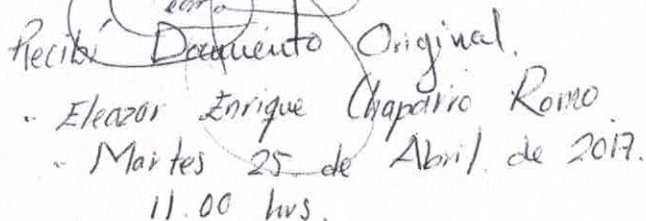 Recibí Documento Original.
- Eleazar Enrique Chaparro Romo.
- Martes 25 de Abril. de 2017.
11.00 hrs.